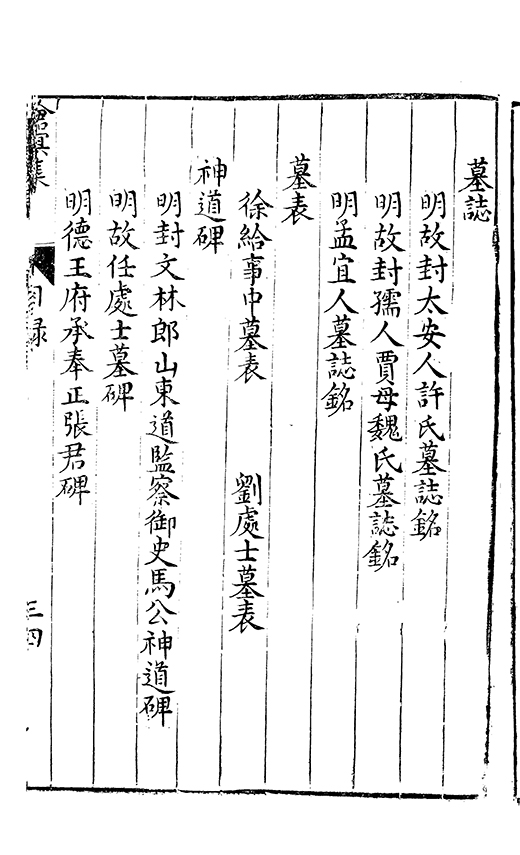 墓誌
明故封太安人許氏墓誌銘
明故封孺人賈母魏氏墓誌銘
明孟宜人墓誌銘
墓表
徐給事中墓表 劉處士墓表
神道碑
明封文林郎山東道監察御史馬公神道碑
明故任處士墓碑
明德王府承奉正張君碑
滄溟集 目録 三四